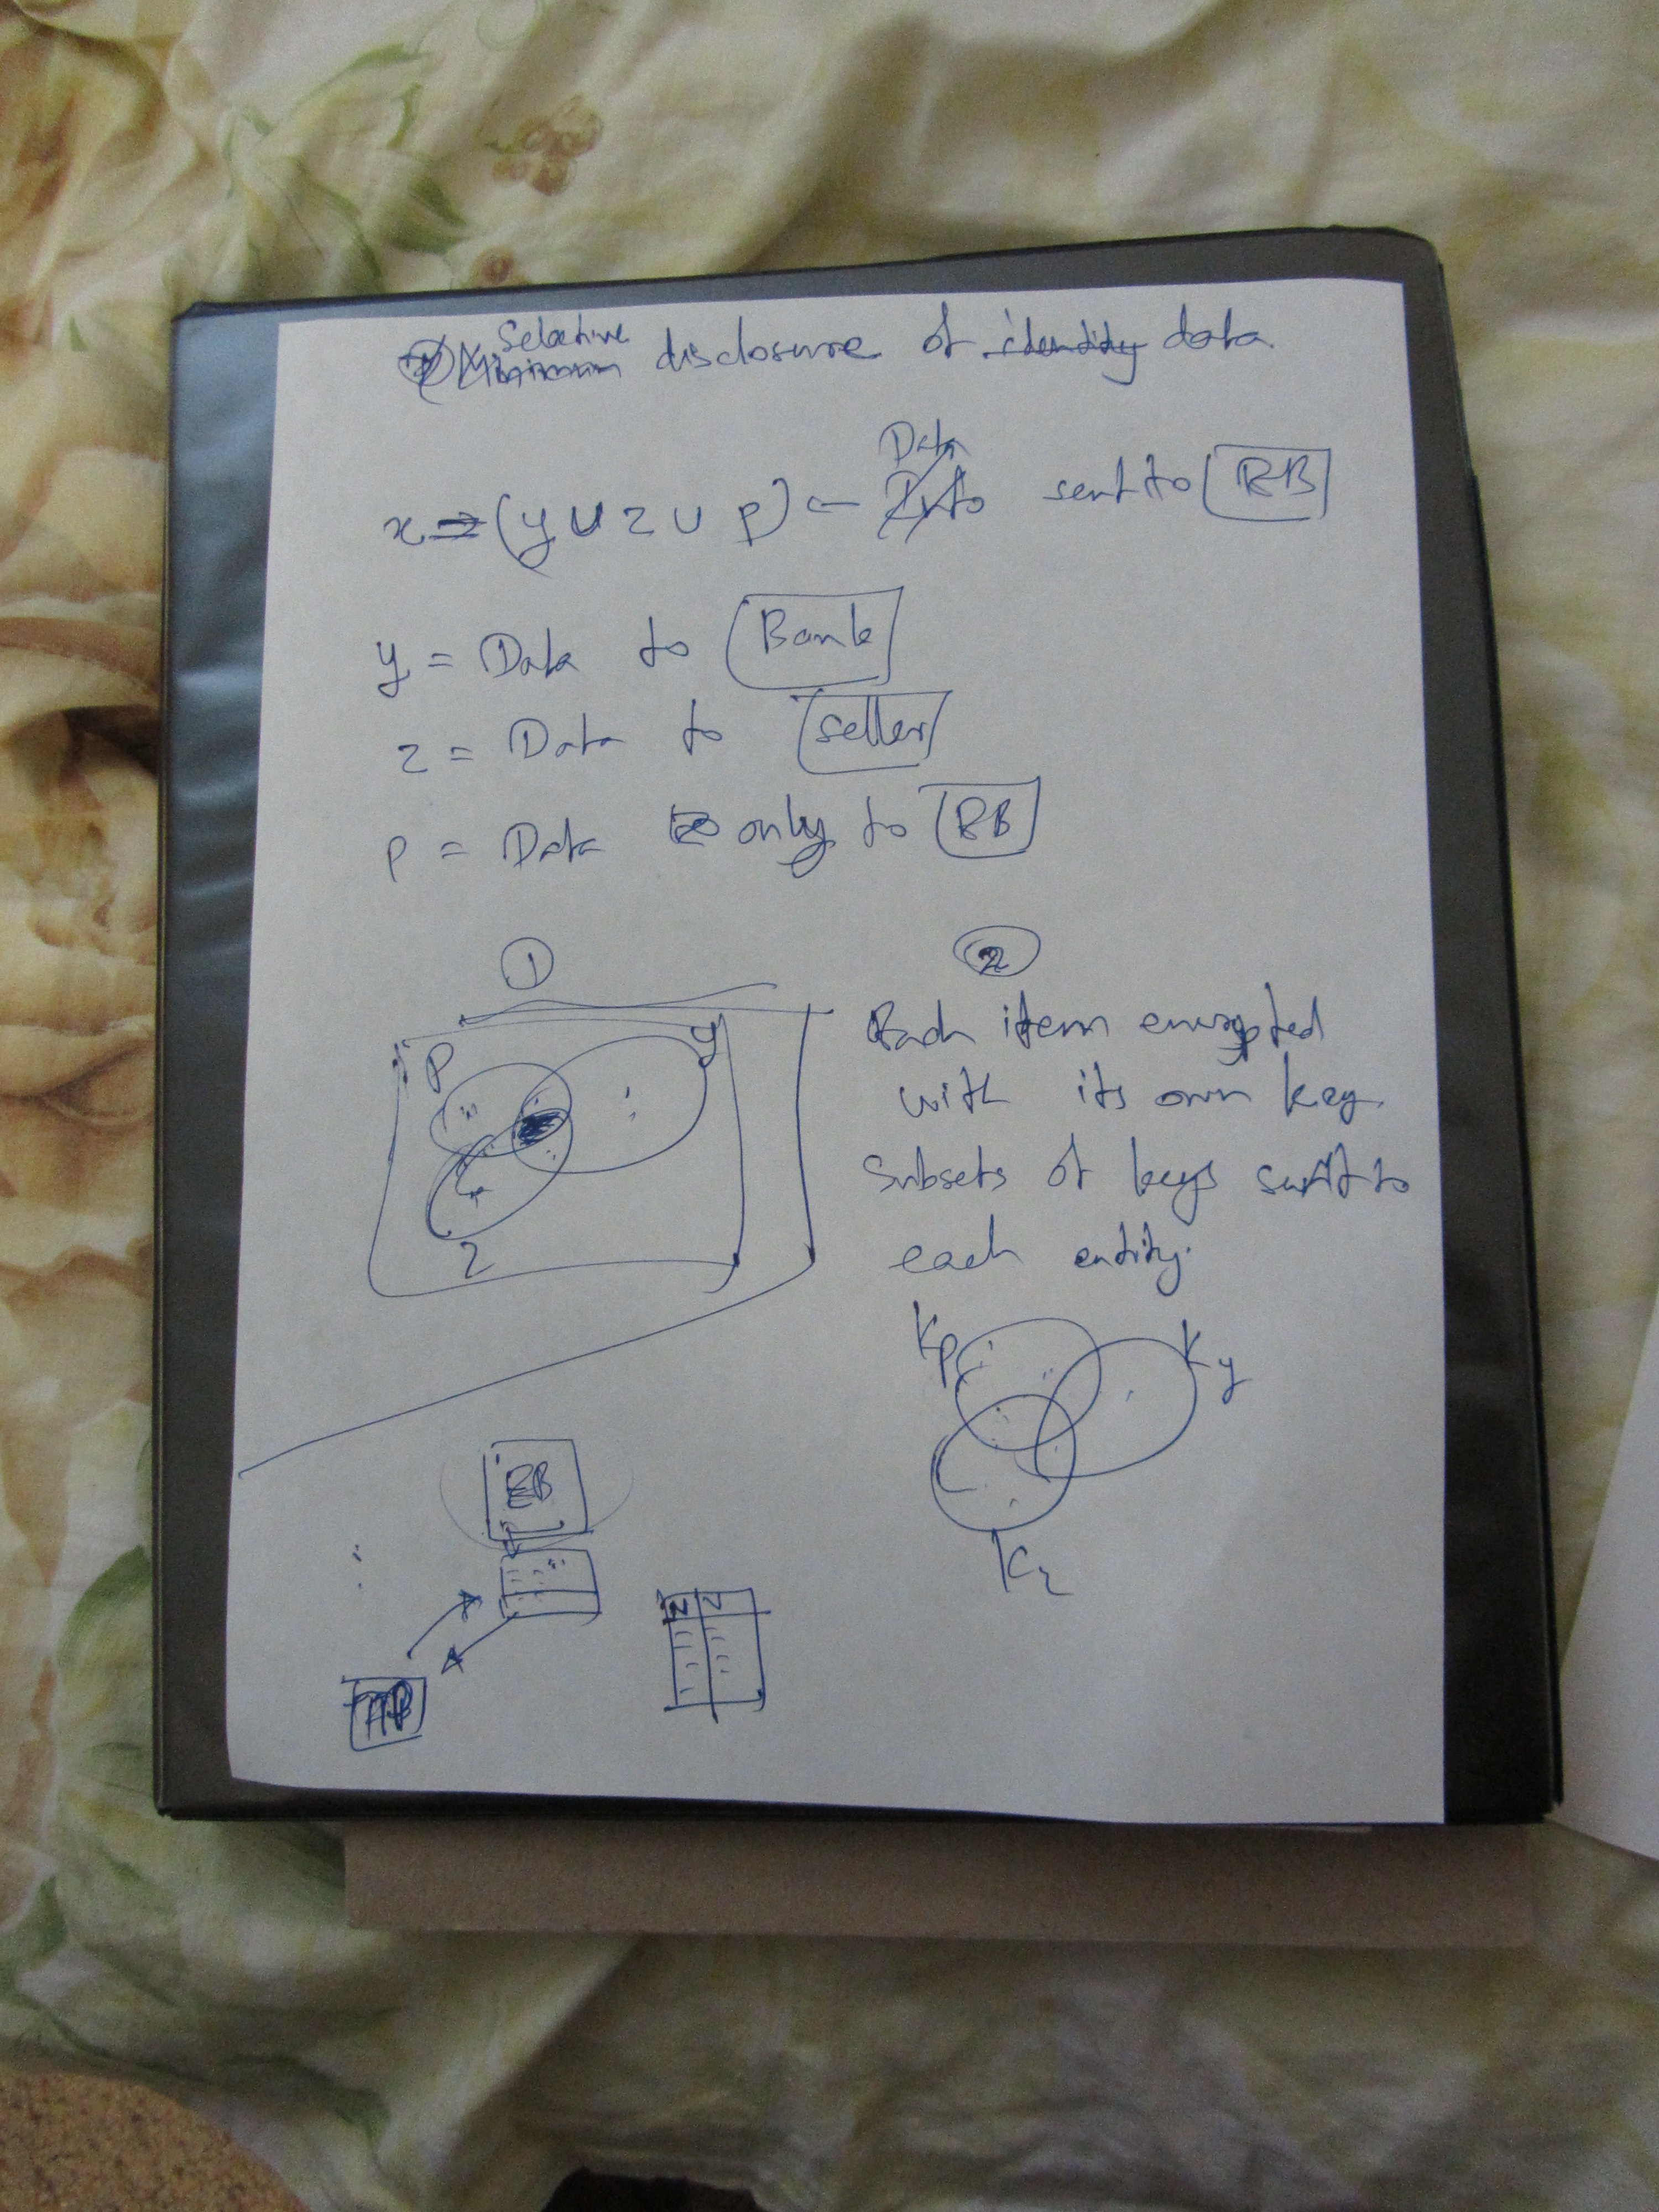 Selective
Minimum disclosure of identity data
Data
x = (y U z U p) ← Info sent to RB
y = Data to Bank
z = Data to seller
p = Data to only to RB
1
2
P y
z
Each item encrypted
with its own key.
Subsets of keys sent to
each entity.
Kp Ky
Kz